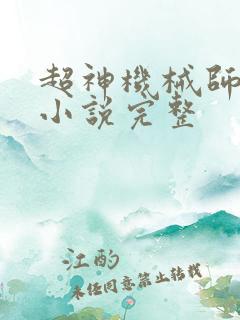 超神機械師
小說完整
江酌
未任同意禁止转载